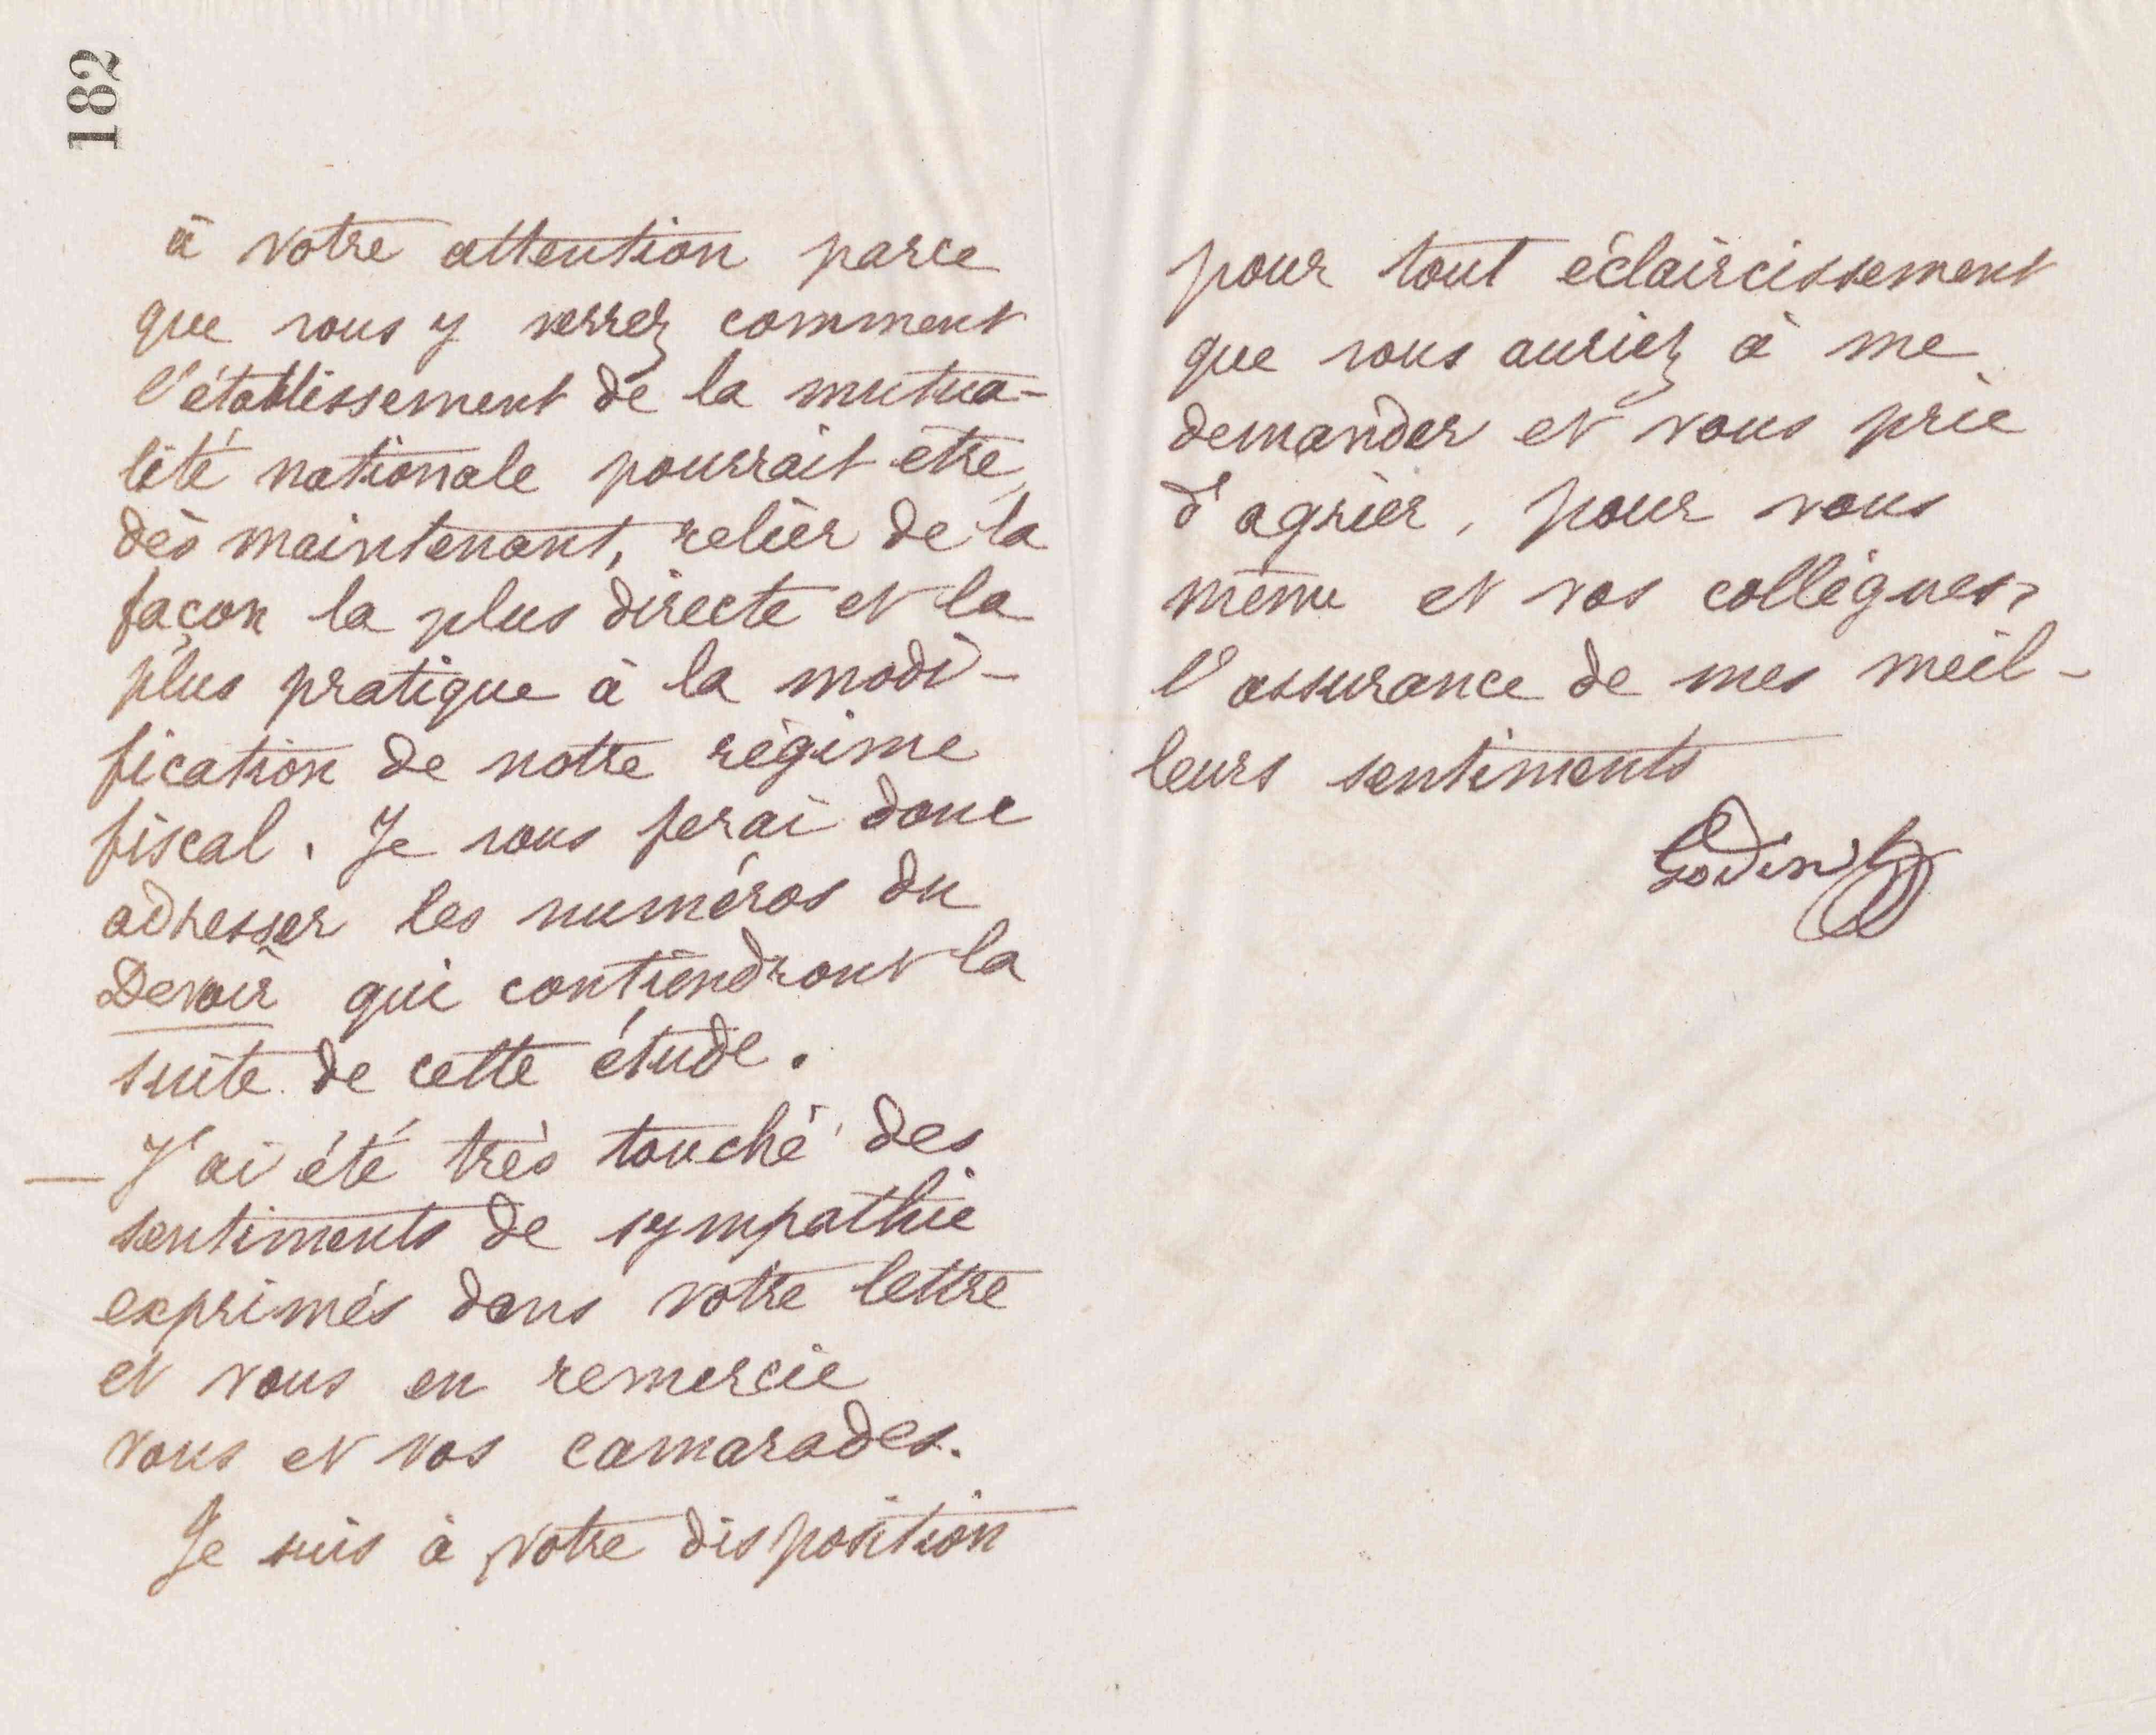 182
à votre attention parce
que vous y verrez comment
l'établissement de la mutua-
lité nationale pourrait être,
dès maintenant, relier de la
façon la plus directe et la
plus pratique à la modi-
fication de notre régime
fiscal. Je vous ferai donc
adresser les numéros du
Devoir qui contiendront la
suite de cette étude.
— J'ai été très touché des
sentiments de sympathie
exprimés dans votre lettre
et vous en remercie
vous et vos camarades.
Je suis à votre disposition
pour tout éclaircissement
que vous auriez à me
demander et vous prie
d'agréer, pour vous
même et vos collègues,
l'assurance de mes meil-
leurs sentiments
Godin